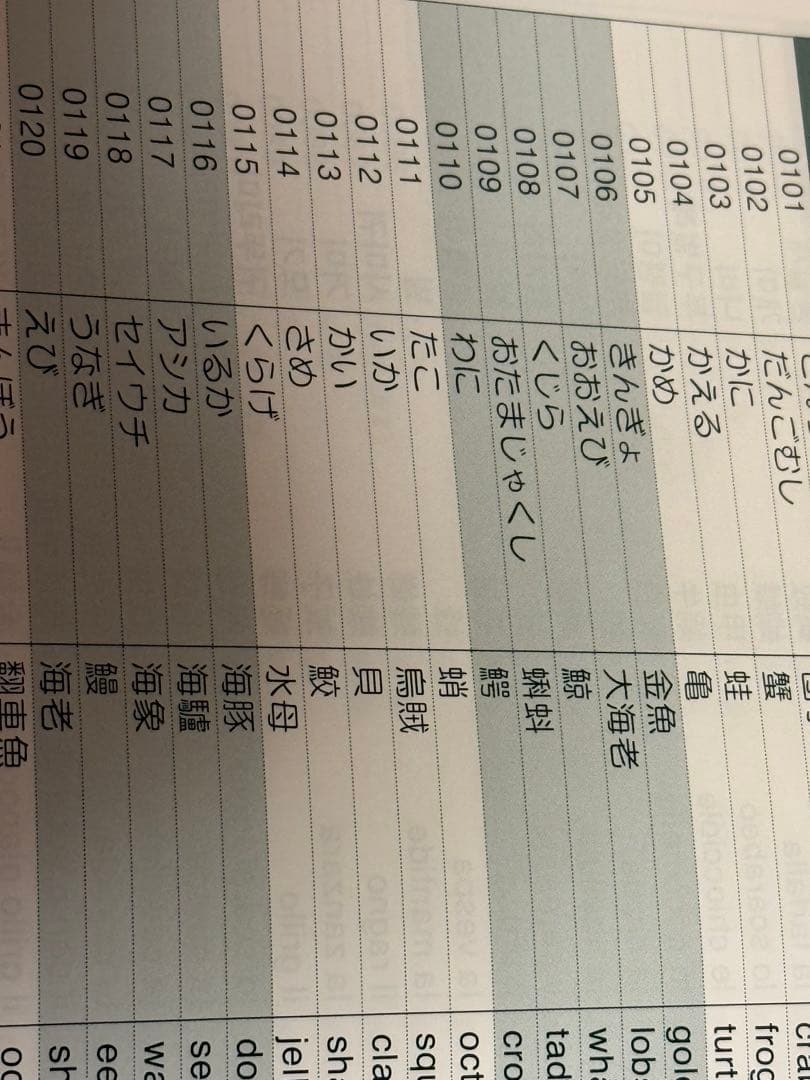 0101
0102 だんごむし
0103 かに 蟹 cra
0104 かえる 蛙 frog
0105 かめ 亀 turt
0106 きんぎょ 金魚 gol
0107 おおえび 大海老 lob
0108 くじら 鯨 wh
0109 おたまじゃくし 蝌蚪 tad
0110 わに 鰐 cro
0111 たこ 蛸 oct
0112 いか 烏賊 squ
0113 かい 貝 cla
0114 さめ 鮫 sha
0115 くらげ 水母 jel
0116 いるか 海豚 do
0117 アシカ 海驢 se
0118 セイウチ 海象 wa
0119 うなぎ 鰻 ee
0120 えび 海老 sh
まんぼう 翻車魚 oc